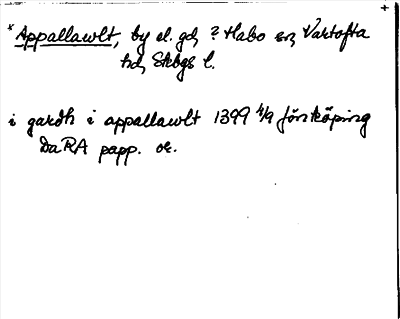 +
* Appallawlt, by el. gd, ? Habo sn, Vartofta
hd, Skbgs l.
i gardh i appallawlt 1399 4/9 Jönköping
DaRA papp. or.